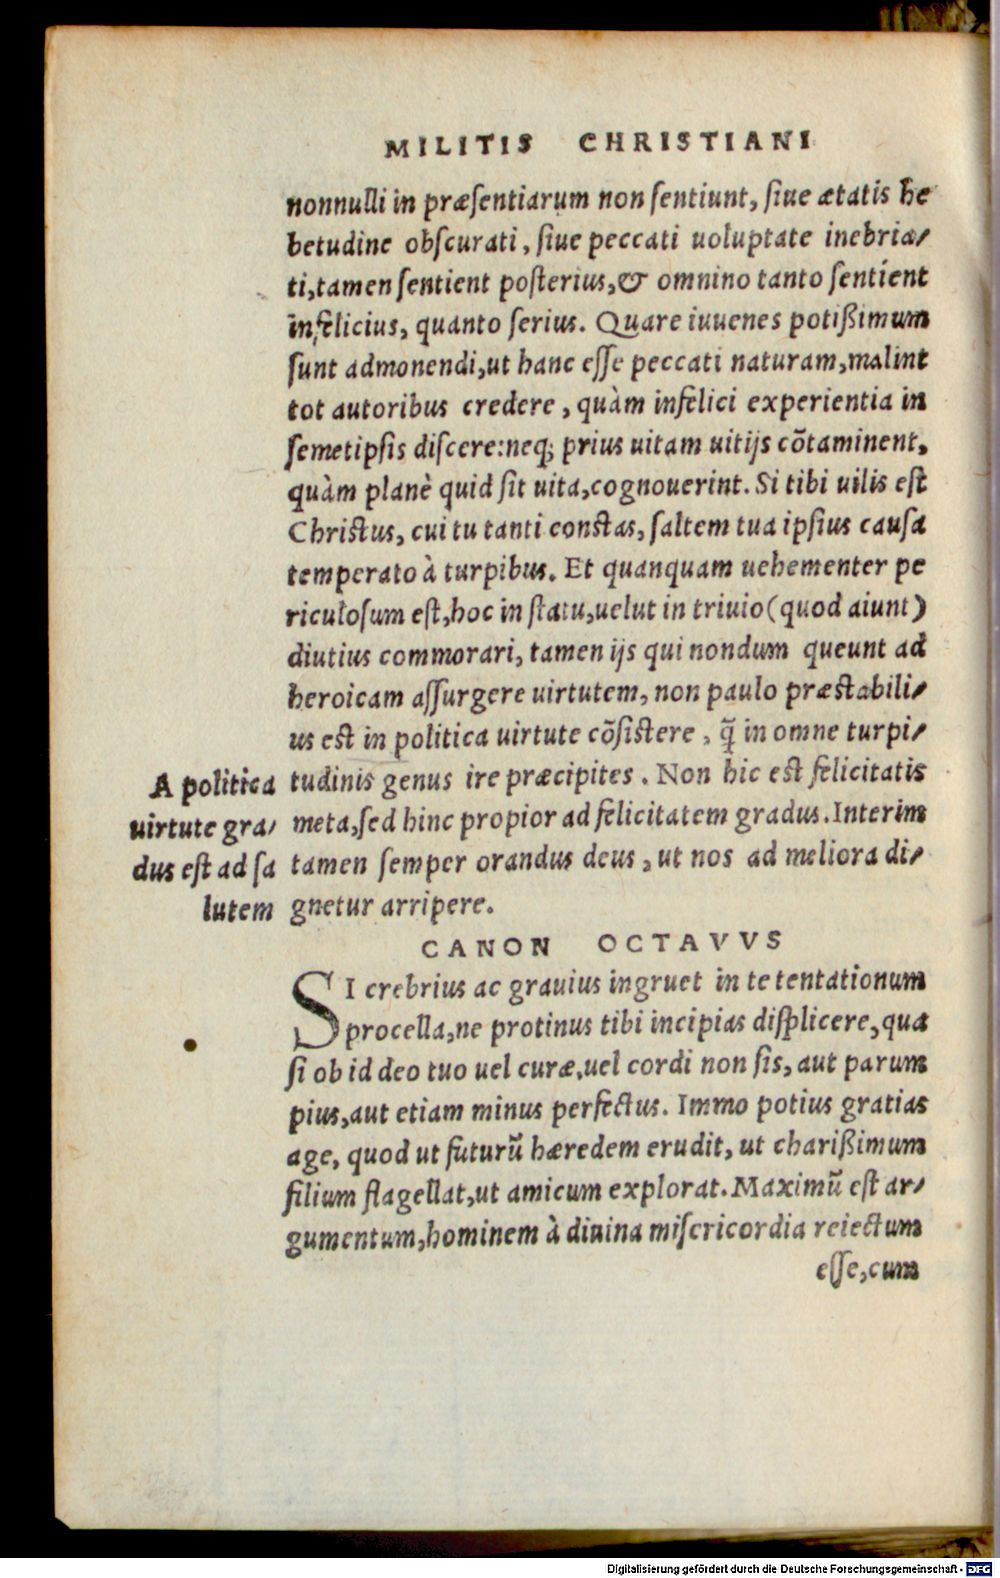 MILITIS CHRISTIANI
nonnulli in præsentiarum non sentiunt, siue ætatis he
betudine obscurati, siue peccati uoluptate inebria/
ti, tamen sentient posterius, & omnino tanto sentient
infelicius, quanto serius. Quare iuuenes potißimum
sunt admonendi, ut hanc esse peccati naturam, malint
tot autoribus credere, quàm infelici experientia in
semetipsis discere: neq; prius uitam uitijs cõtaminent,
quàm planè quid sit uita, cognouerint. Si tibi uilis est
Christus, cui tu tanti constas, saltem tua ipsius causa
temperato à turpibus. Et quanquam uehementer pe
riculosum est, hoc in statu, uelut in triuio (quod aiunt)
diutius commorari, tamen ijs qui nondum queunt ad
heroicam assurgere uirtutem, non paulo præstabili/
us est in politica uirtute cõsistere, q̃ in omne turpi/
tudinis genus ire præcipites. Non hic est felicitatis
meta, sed hinc propior ad felicitatem gradus. Interim
tamen semper orandus deus, ut nos ad meliora di/
gnetur arripere.
A politica
uirtute gra/
dus est ad sa
lutem
CANON OCTAVVS
SI crebrius ac grauius ingruet in te tentationum
procella, ne protinus tibi incipias displicere, qua
si ob id deo tuo uel curæ, uel cordi non sis, aut parum
pius, aut etiam minus perfectus. Immo potius gratias
age, quod ut futurũ hæredem erudit, ut charißimum
filium flagellat, ut amicum explorat. Maximũ est ar/
gumentum, hominem à diuina misericordia reiectum
esse, cum
Digitalisierung gefördert durch die Deutsche Forschungsgemeinschaft - DFG